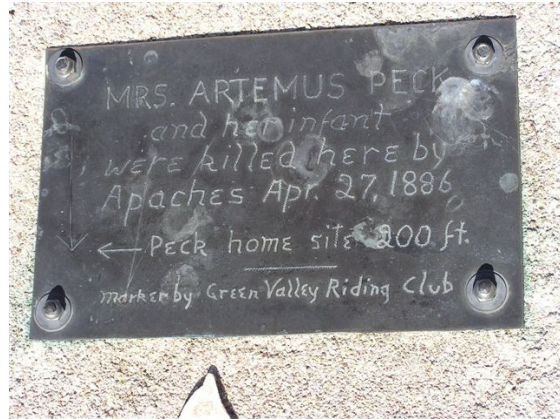 MRS. ARTEMUS PECK
and her infant
were killed here by
Apaches Apr. 27, 1886
← Peck home site 200 ft.
marker by Green Valley Riding Club